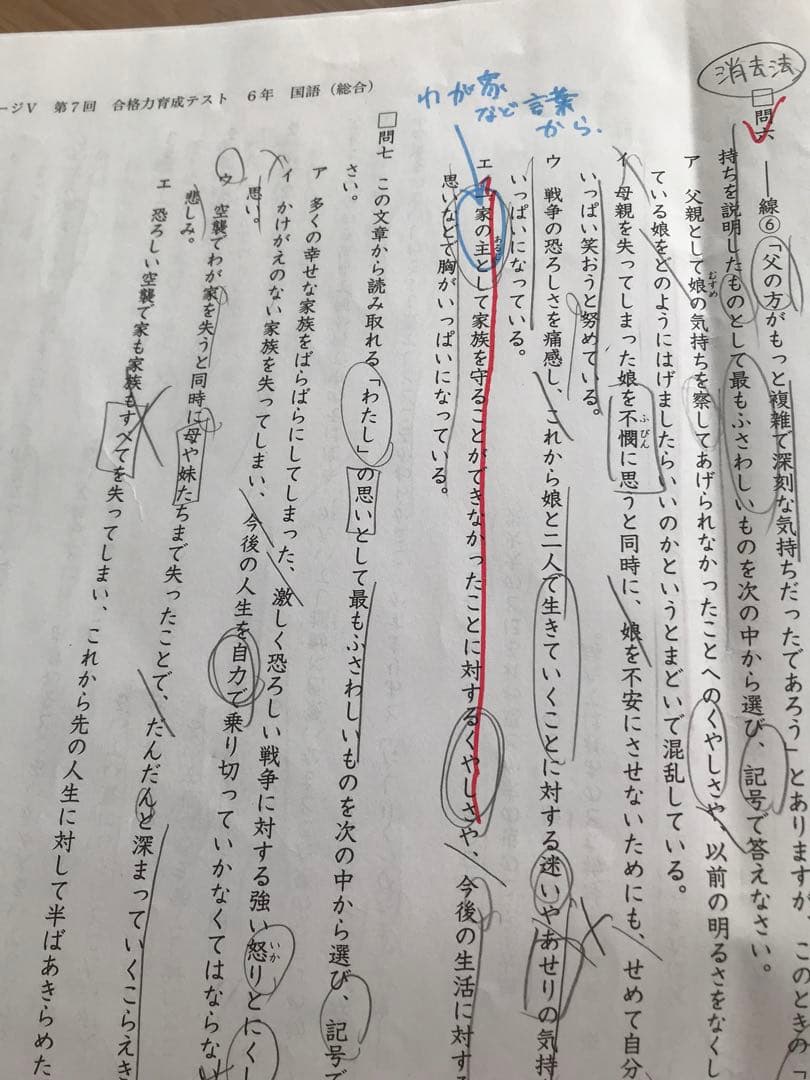 ージⅤ 第７回 合格力育成テスト ６年 国語（総合）
消去法
□問六 ――線⑥「父の方がもっと複雑で深刻な気持ちだったであろう」とありますが、このときの「
持ちを説明したものとして最もふさわしいものを次の中から選び、記号で答えなさい。
ア 父親として娘の気持ちを察してあげられなかったことへのくやしさや、以前の明るさをなくし
むすめ
ている娘をどのようにはげましたらいいのかというとまどいで混乱している。
イ 母親を失ってしまった娘を不憫に思うと同時に、娘を不安にさせないためにも、せめて自分
ふびん
いっぱい笑おうと努めている。
ウ 戦争の恐ろしさを痛感し、これから娘と二人で生きていくことに対する迷いやあせりの気持
いっぱいになっている。
わが家
など言葉
から、
エ 一家の主として家族を守ることができなかったことに対するくやしさや、今後の生活に対す
あるじ
思いなどで胸がいっぱいになっている。
□問七 この文章から読み取れる「わたし」の思いとして最もふさわしいものを次の中から選び、記号で
さい。
ア 多くの幸せな家族をばらばらにしてしまった、激しく恐ろしい戦争に対する強い怒りとにくし
いか
イ かけがえのない家族を失ってしまい、今後の人生を自力で乗り切っていかなくてはならな
思い。
ウ 空襲でわが家を失うと同時に母や妹たちまで失ったことで、だんだんと深まっていくこらえき
悲しみ。
エ 恐ろしい空襲で家も家族もすべてを失ってしまい、これから先の人生に対して半ばあきらめた